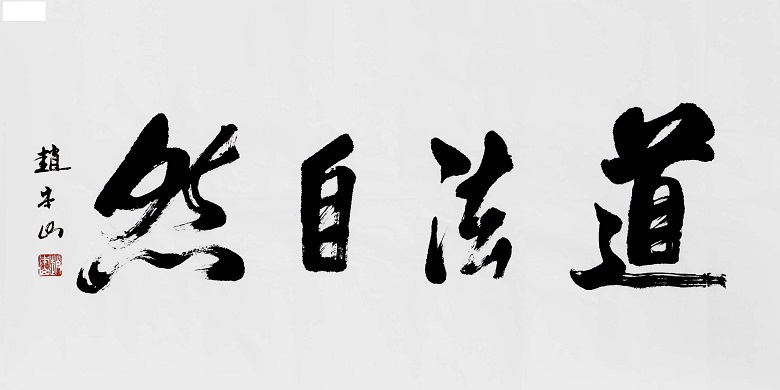 道法自然
趙牛山